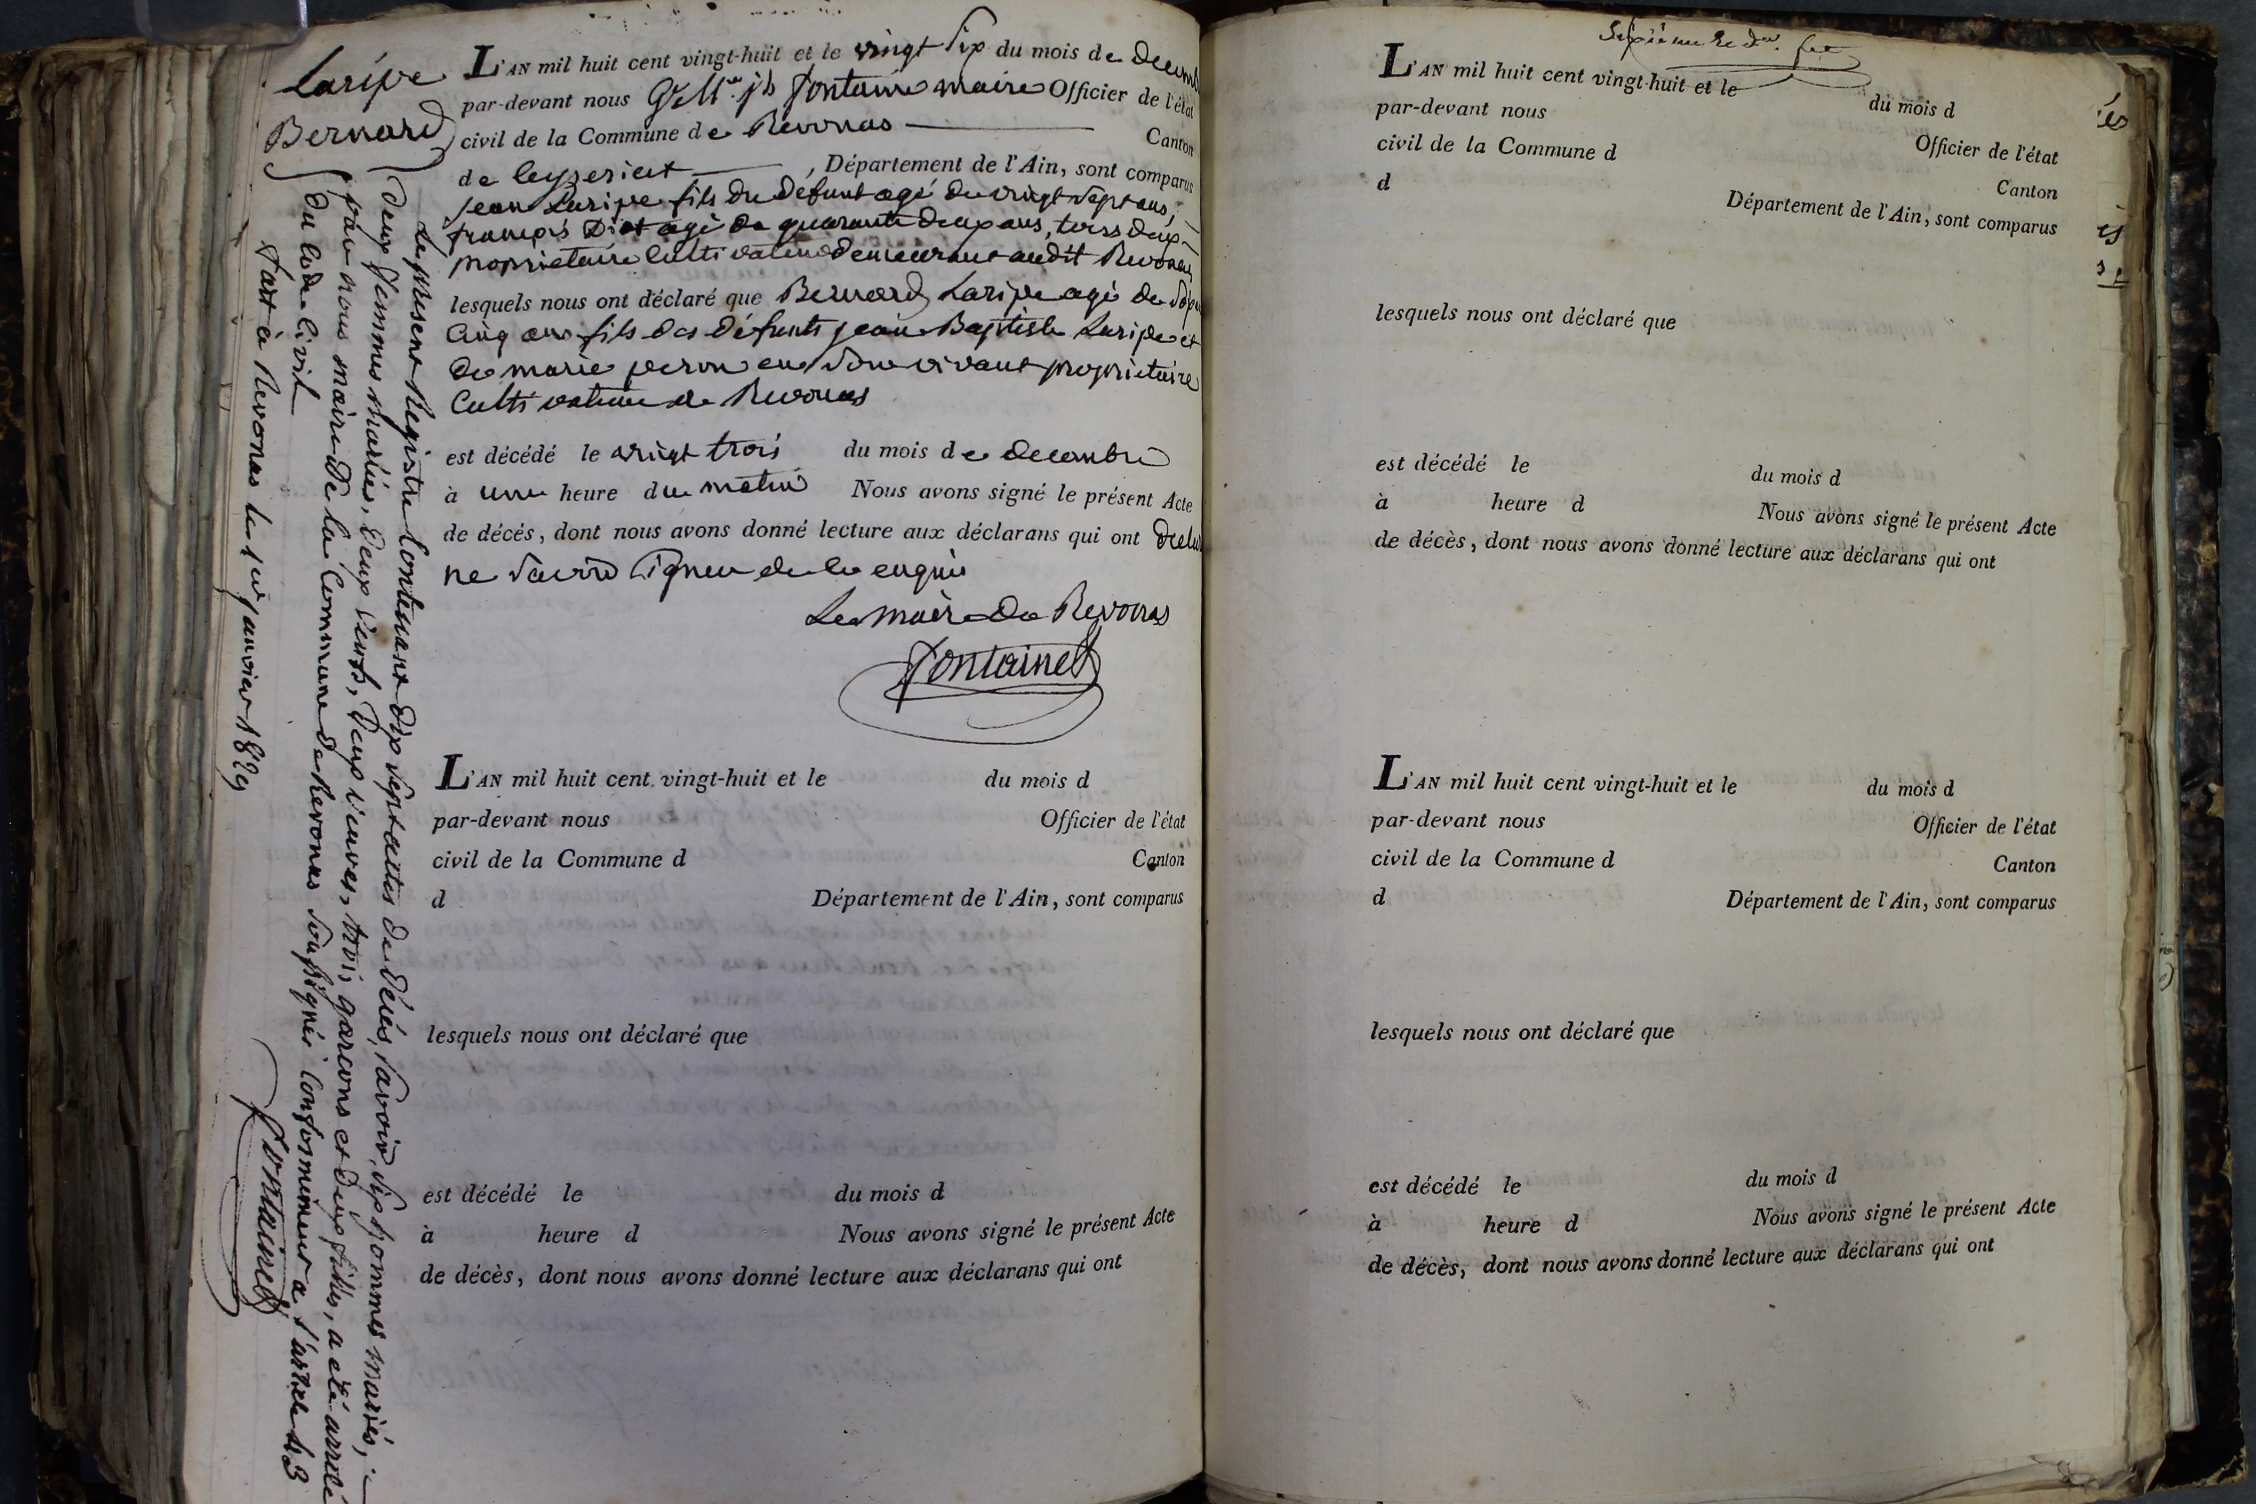 Laripe
Bernard
L'AN mil huit cent vingt-huit et le vingt six du mois de decemb
par-devant nous Gme jh fontaine maire Officier de l'état
civil de la Commune de Revonas Canton
de Ceyzeriat, Département de l'Ain, sont comparus
jean Laripe fils du defunt agé de vingt sept ans,
françois Diot agé de quarante deux ans, tous deux
proprietaire Cultivateur demeurant audit Revonas
lesquels nous ont déclaré que Bernard Laripe agé de
Cinq ans fils des défunts jean Baptiste Laripe et
de marie peron en son vivant proprietaire
Cultivateur de Revonas
est décédé le vingt trois du mois de decembre
à une heure du matin Nous avons signé le présent Acte
de décés, dont nous avons donné lecture aux déclarans qui ont
ne savoir signer de ce enquis
Le maire de Revonas
fontaine
Le present Registre Contenant dix sept actes de Décés, savoir, six hommes mariés,
deux femmes mariées, deux veufs, deux veuves, trois garçons et deux filles, a été arrêté
par nous maire de la Commune de Revonas soussigné conformément a l'article 43
du Code Civil
fait à Revonas le 1er janvier 1829
fontaine
L'AN mil huit cent vingt-huit et le du mois d
par-devant nous Officier de l'état
civil de la Commune d Canton
d Département de l'Ain, sont comparus
lesquels nous ont déclaré que
est décédé le du mois d
à heure d Nous avons signé le présent Acte
de décès, dont nous avons donné lecture aux déclarans qui ont
L'AN mil huit cent vingt-huit et le du mois d
par-devant nous Officier de l'état
civil de la Commune d Canton
d Département de l'Ain, sont comparus
lesquels nous ont déclaré que
est décédé le du mois d
à heure d Nous avons signé le présent Acte
de décès, dont nous avons donné lecture aux déclarans qui ont
L'AN mil huit cent vingt-huit et le du mois d
par-devant nous Officier de l'état
civil de la Commune d Canton
d Département de l'Ain, sont comparus
lesquels nous ont déclaré que
est décédé le du mois d
à heure d Nous avons signé le présent Acte
de décès, dont nous avons donné lecture aux déclarans qui ont